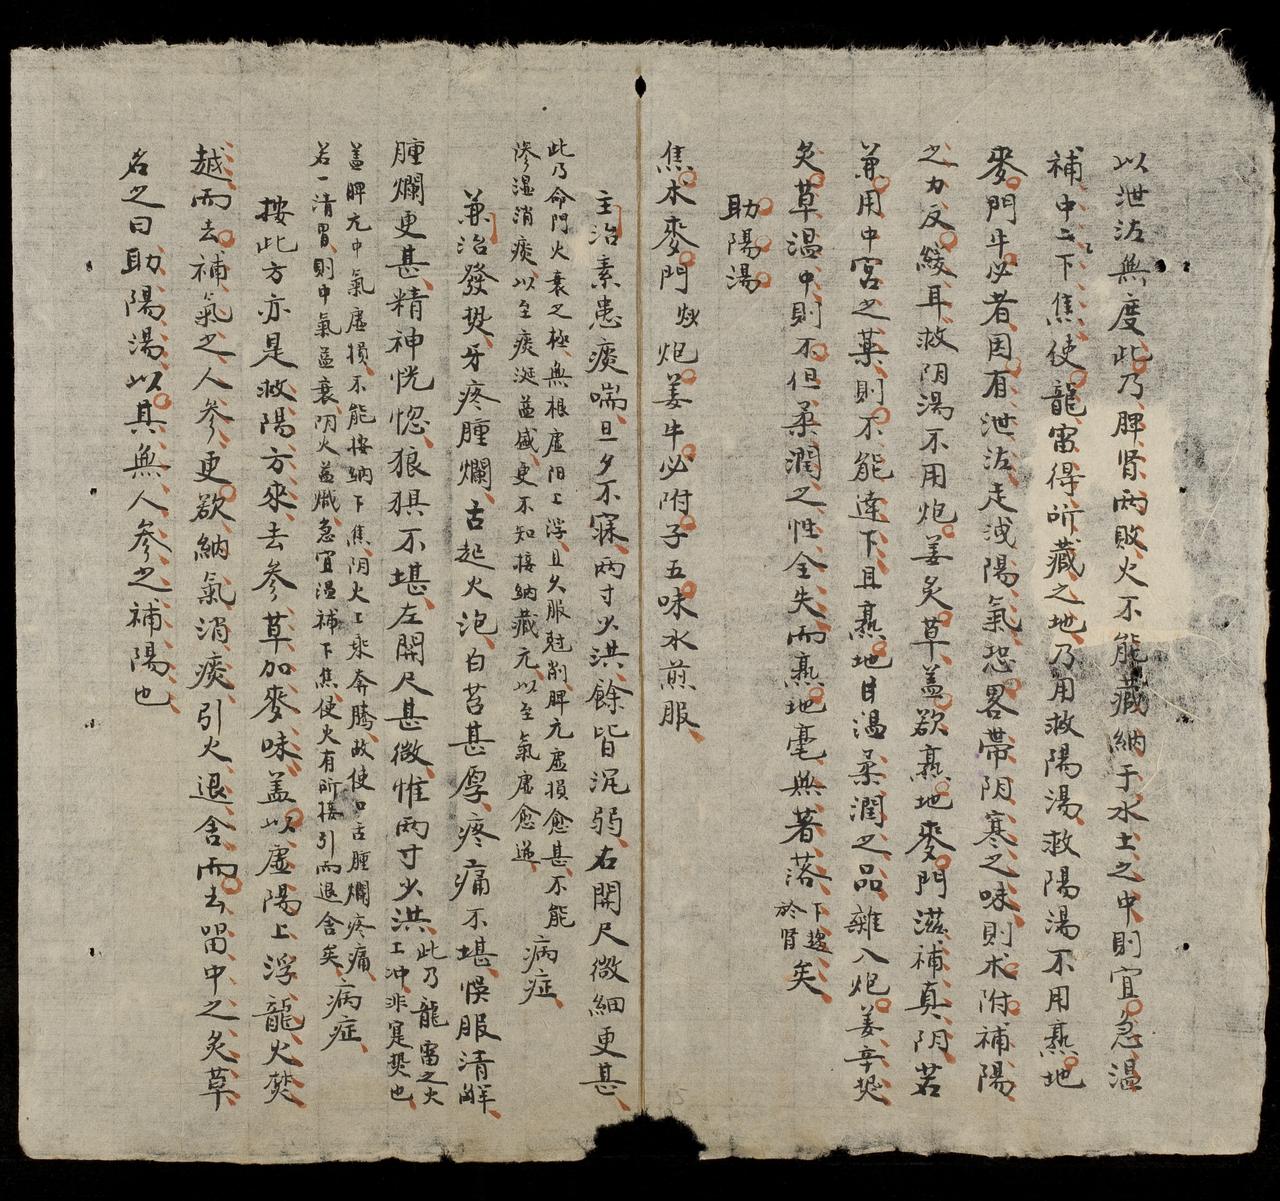 以泄沽無度此乃脾肾两敗火不能藏納于水土之中則宜急温
補中二下焦使龍雷得所藏之地乃用救陽湯救陽湯不用熟地
麥門牛必者因有泄沽走泄陽氣恐畧带阴寒之味則术附補陽
之力反緩耳救阴湯不用炮姜炙草盖欲熟地麥門滋補真阴若
兼用中宮之藥則不能達下且熟地甘温柔潤之品雜入炮姜辛热
炙草温中則不但柔潤之性全失而熟地毫無著落下趋於肾矣
助陽湯
焦术麥門炒炮姜牛必附子五味水煎服
主治素患痰喘旦夕不寐两寸火洪餘皆沉弱右関尺微細更甚
此乃命門火衰之極無根虚阳上浮且久服尅削脾元虚損愈甚不能
渗湿消痰以至痰涎益盛更不知接納藏元以至氣虚愈逆病症
兼治發热牙疼腫爛古起火泡白苔甚厚疼痛不堪悞服清解
腫爛更甚精神恍惚狼狽不堪左関尺甚微惟两寸少洪此乃龍雷之火上冲非寔热也
盖脾元中氣虚損不能接納下焦阴火上乘奔騰故使口舌腫爛疼痛
若一清胃則中氣益衰阴火益熾急宜温補下焦使火有所接引而退舍矣病症
按此方亦是救陽方來去参草加麥味盖以虚陽上浮龍火焚
越而去補氣之人参更欲納氣消痰引火退舍而去留中之炙草
名之曰助陽湯以其無人参之補陽也